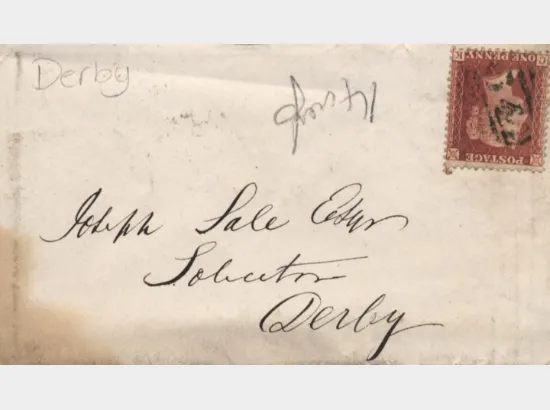 Derby
ONE PENNY
POSTAGE
Joseph Sale Esqr
Solicitor
Derby